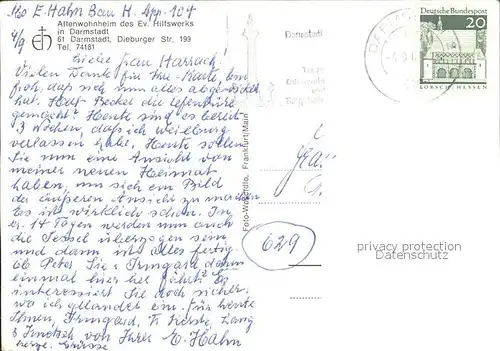 Abs E. Hahn Bau H. App. 104
4/9
Altenwohnheim des Ev. Hilfswerks
in Darmstadt
61 Darmstadt, Dieburger Str. 193
Tel. 74181
Liebe Frau Harrach!
Vielen Dank für Ihre Karte, bin
froh, daß sich nun alles abgewickelt
hat. Hat Beckel die
gemacht? Heute sind es bereits
3 Wochen, daß ich Weilburg
verlassen habe. Heute sollen
Sie nun eine Ansicht von
meiner neuen Heimat
haben, um sich ein Bild
der äußeren Ansicht zu machen
Es ist wirklich schön. In
ca. 14 Tagen werden nun auch
die Sessel überzogen sein
und dann ist alles fertig
Ob Peter, Sie u. Irmgard dann
einmal hier her fährt? Es
interessiert Sie doch sicher,
wo ich gelandet bin. Für heute
Ihnen, Irmgard,
von Ihrer E. Hahn
herzl. Grüsse
Foto-Wolf Uldo, Frankfurt/Main
Darmstadt
Deutsche Bundespost
20
LORSCH/HESSEN
629
privacy protection
Datenschutz